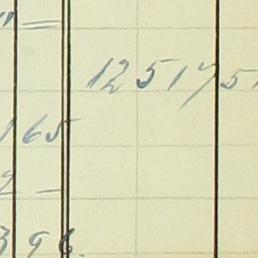 " =
12 517 5
165
9 -
396.